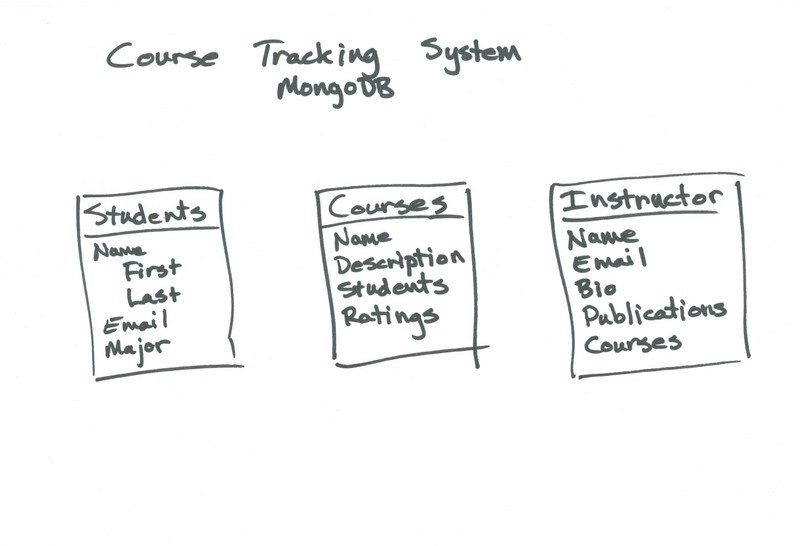 Course Tracking System
MongoDB
Students
Name
First
Last
Email
Major
Courses
Name
Description
Students
Ratings
Instructor
Name
Email
Bio
Publications
Courses